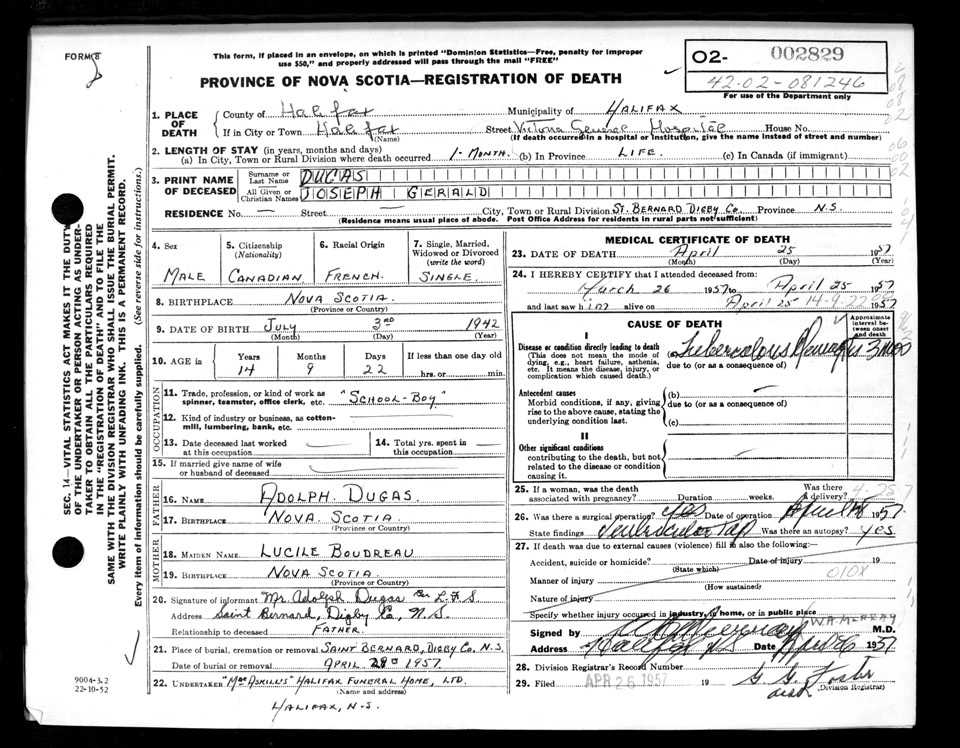 FORM 8
This form, if placed in an envelope, on which is printed "Dominion Statistics—Free, penalty for improper
use $50," and properly addressed will pass through the mail "FREE"
PROVINCE OF NOVA SCOTIA—REGISTRATION OF DEATH
02- 002829
42-02-081246
For use of the Department only
SEC. 14—VITAL STATISTICS ACT MAKES IT THE DUTY
OF THE UNDERTAKER OR PERSON ACTING AS UNDER-
TAKER TO OBTAIN ALL THE PARTICULARS REQUIRED
IN THE "REGISTRATION OF DEATH" AND TO FILE THE
SAME WITH THE DIVISION REGISTRAR WHO SHALL ISSUE THE BURIAL PERMIT.
WRITE PLAINLY WITH UNFADING INK. THIS IS A PERMANENT RECORD.
Every item of information should be carefully supplied. (See reverse side for instructions.)
1. PLACE OF DEATH
County of Halifax Municipality of HALIFAX
If in City or Town Halifax Street Victoria General Hospital House No.
(Name) (If death occurred in a hospital or institution, give the name instead of street and number)
2. LENGTH OF STAY (in years, months and days)
(a) In City, Town or Rural Division where death occurred 1-MONTH. (b) In Province LIFE. (c) In Canada (if immigrant)
3. PRINT NAME OF DECEASED
Surname or Last Name DUGAS
All Given or Christian Names JOSEPH GERALD
RESIDENCE No. — Street — City, Town or Rural Division ST. BERNARD DIGBY Co. Province N.S.
(Residence means usual place of abode. Post Office Address for residents in rural parts not sufficient)
4. Sex
MALE
5. Citizenship (Nationality)
CANADIAN
6. Racial Origin
FRENCH.
7. Single, Married, Widowed or Divorced (write the word)
SINGLE.
8. BIRTHPLACE NOVA SCOTIA.
(Province or Country)
9. DATE OF BIRTH JULY 3RD 1942
(Month) (Day) (Year)
10. AGE in Years Months Days If less than one day old
14 9 22 hrs. or min.
OCCUPATION
11. Trade, profession, or kind of work as spinner, teamster, office clerk, etc. "SCHOOL-BOY"
12. Kind of industry or business, as cotton-mill, lumbering, bank, etc.
13. Date deceased last worked at this occupation
14. Total yrs. spent in this occupation
15. If married give name of wife or husband of deceased
FATHER
16. NAME ADOLPH DUGAS.
17. BIRTHPLACE NOVA SCOTIA
(Province or Country)
MOTHER
18. MAIDEN NAME LUCILE BOUDREAU
19. BIRTHPLACE NOVA SCOTIA.
(Province or Country)
20. Signature of informant Mr. Adolph Dugas
Address Saint Bernard, Digby Co, N.S.
Relationship to deceased FATHER.
21. Place of burial, cremation or removal SAINT BERNARD, DIGBY Co. N.S.
Date of burial or removal APRIL 1957.
22. UNDERTAKER "MacASKILL'S" HALIFAX FUNERAL HOME, LTD.
(Name and address)
HALIFAX, N.S.
9004-3.2
22-10-52
MEDICAL CERTIFICATE OF DEATH
23. DATE OF DEATH April 25 1957
(Month) (Day) (Year)
24. I HEREBY CERTIFY that I attended deceased from:
March 26 1957 to April 25 1957
and last saw him alive on April 25 1957
14-9-22
CAUSE OF DEATH
Approximate interval between onset and death
I
Disease or condition directly leading to death
(This does not mean the mode of dying, e.g., heart failure, asthenia, etc. It means the disease, injury, or complication which caused death.)
(a) Tuberculous Meningitis 3 mos
due to (or as a consequence of)
Antecedent causes
Morbid conditions, if any, giving rise to the above cause, stating the underlying condition last.
(b) —
due to (or as a consequence of)
(c)
II
Other significant conditions
contributing to the death, but not related to the disease or condition causing it.
25. If a woman, was the death associated with pregnancy? Duration weeks. Was there a delivery?
26. Was there a surgical operation? yes Date of operation 1957
State findings Ventricular Tap Was there an autopsy? yes
27. If death was due to external causes (violence) fill in also the following:—
Accident, suicide or homicide? Date of injury 19
(State which)
Manner of injury 010X
(How sustained)
Nature of injury
Specify whether injury occurred in industry, in home, or in public place
W.A. MURRAY
Signed by M.D.
Address Halifax NS Date April 26 1957
28. Division Registrar's Record Number
29. Filed APR 26 1957 19 G G Foster
(Division Registrar)